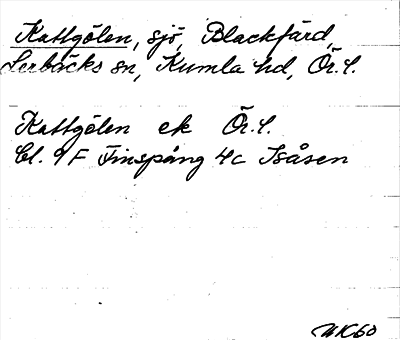 Kattgölen, sjö, Blackfärd,
Lerbäcks sn, Kumla hd, Ör.l.
Kattgölen ek Ör.l.
Bl. 9F Finspång 4c Isåsen
NK60